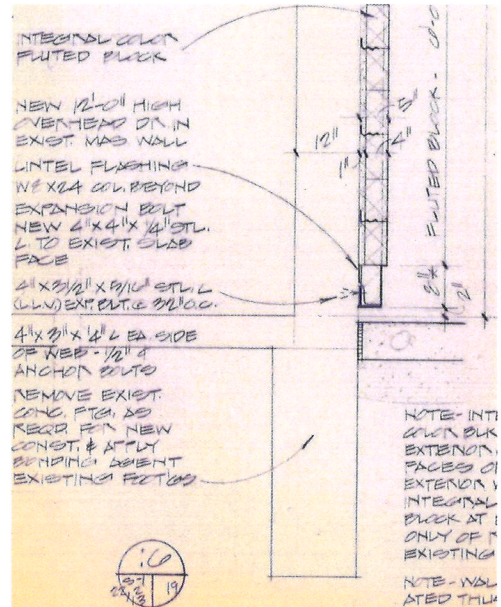 INTEGRAL COLOR
FLUTED BLOCK
NEW 12'-0" HIGH
OVERHEAD DR. IN
EXIST. MAS WALL
LINTEL FLASHING
W8 X24 COL. BEYOND
EXPANSION BOLT
NEW 4"X4"X 1/4" STL.
L TO EXIST. SLAB
FACE
4"X3 1/2"X 5/16" STL. L
(LLV) EXP. BLT. @ 32" O.C.
4"X3"X 1/4" L EA. SIDE
OF WEB - 1/2" φ
ANCHOR BOLTS
REMOVE EXIST.
CONC. FTG. AS
REQD. FOR NEW
CONST. & APPLY
BONDING AGENT
EXISTING FOOT'GS
12"
1"
5"
4"
FLUTED BLOCK -
2"
NOTE - INT
COLOR BLK
EXTERIOR
FACES O
EXTERIOR
INTEGRAL
BLOCK AT
ONLY OF
EXISTING
NOTE - WAL
ATED THU
19